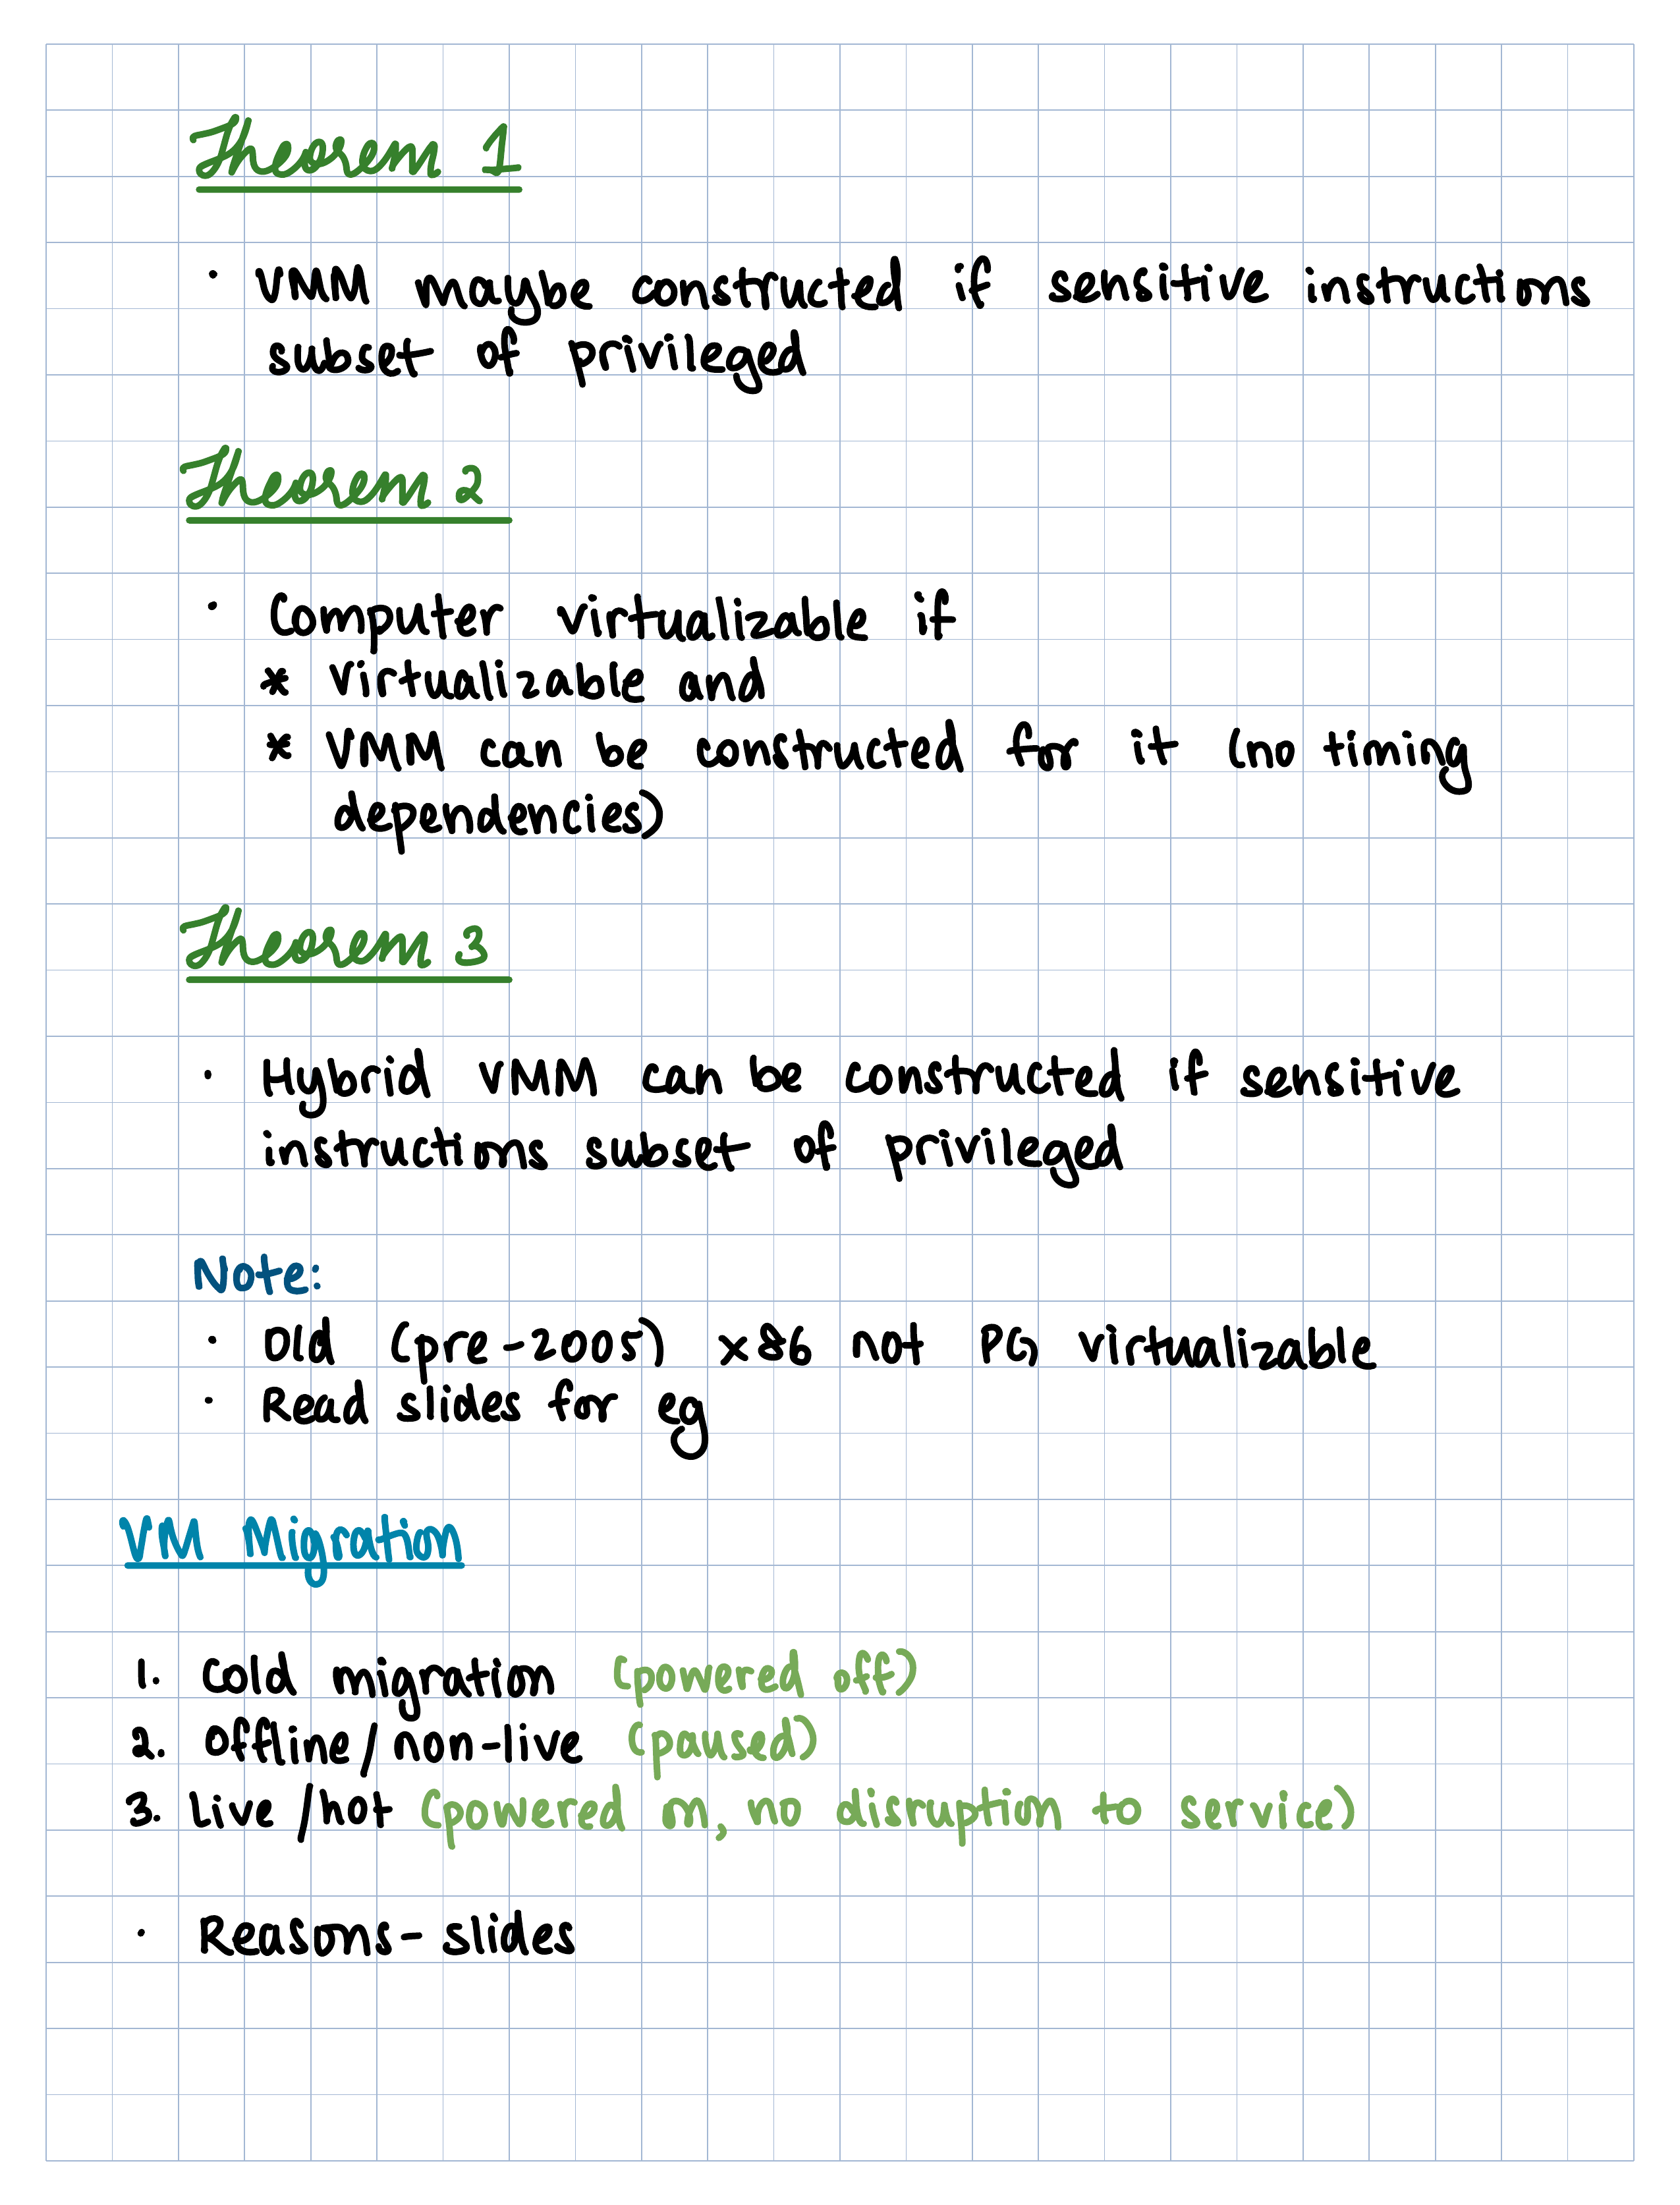 Theorem 1
· VMM maybe constructed if sensitive instructions
subset of privileged
Theorem 2
· Computer virtualizable if
* virtualizable and
* VMM can be constructed for it (no timing
dependencies)
Theorem 3
· Hybrid VMM can be constructed if sensitive
instructions subset of privileged
Note:
· Old (pre-2005) x86 not PG virtualizable
· Read slides for eg
VM Migration
1. Cold migration (powered off)
2. Offline/non-live (paused)
3. Live/hot (powered on, no disruption to service)
· Reasons- slides